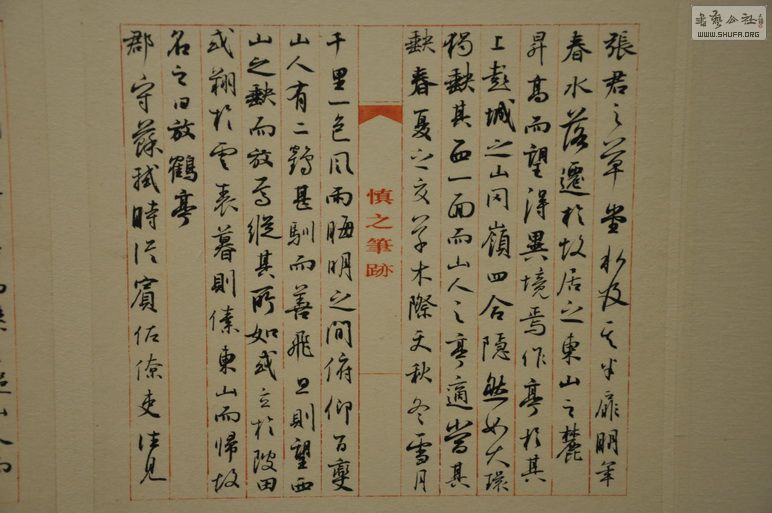 張君之草堂水及其半扉明年
春水落遷於故居之東山之麓
昇高而望得異境焉作亭於其
上彭城之山岡嶺四合隱然如大環
獨缺其西一面而山人之亭適當其
缺春夏之交草木際天秋冬雪月
慎之筆跡
千里一色風雨晦明之間俯仰百變
山人有二鶴甚馴而善飛旦則望西
山之缺而放焉縱其所如或立於陂田
或翔於雲表暮則傃東山而歸故
名之曰放鶴亭
郡守蘇軾時從賓佐僚吏往見
山人而
書藝公社
WWW.SHUFA.ORG